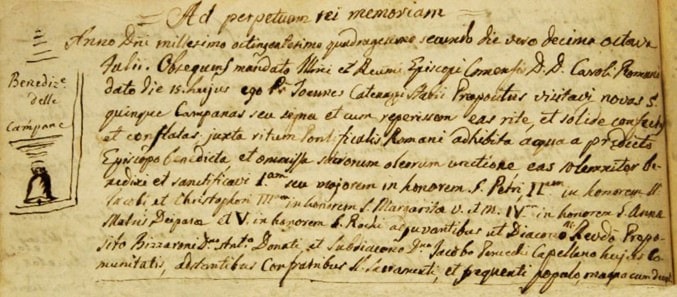 Ad perpetuam rei memoriam
Anno Dñi millesimo octingentesimo quadragesimo secundo die vero decima octava
Julii. Obsequens mandato Illmi et Revmi Episcopi Comensis D. D. Caroli Romanò
dato die 15. hujus ego Pr Joannes Stabii Prepositus visitavi novas
quinque Campanas seu signa et cum reperissem eas rite, et solide confectas
et conflatas juxta ritum Pontificalis Romani adhibita acqua a predicto
Episcopo benedicta et omissa sacrorum oleorum unctione eas solemniter be-
nedixi et sanctificavi I.am seu majorem in honorem S. Petri II.am in honorem SS
Jacobi et Christophori III.am in honorem S. Margarita V. et M. IV.am in honorem S. Anna
Matris Deipara et V. in honorem S. Rochi adjuvantibus et Diacono Revdo Prepo-
sito Bizzaroni Dno Antº Donati, et Subdiacono Dno Jacobo Capellano hujus Co-
munitatis, adstantibus Confratribus SS. Sacramenti, et frequenti populo, magna cum
Benedize.
delle
Campane